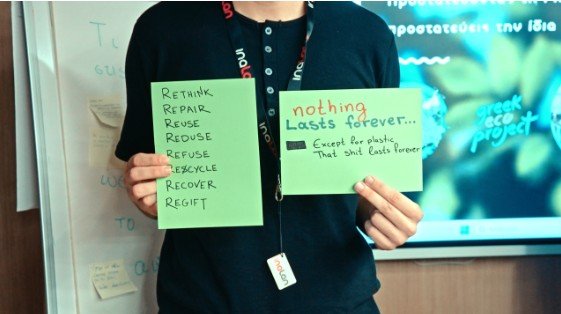 προστατεύεις την ίδια
greek
eco
project
inalan
inalan
RETHINK
REPAIR
REUSE
REDUSE
REFUSE
RECYCLE
RECOVER
REGIFT
nothing
Lasts forever...
Except for plastic
That shit lasts forever
inalan
TO